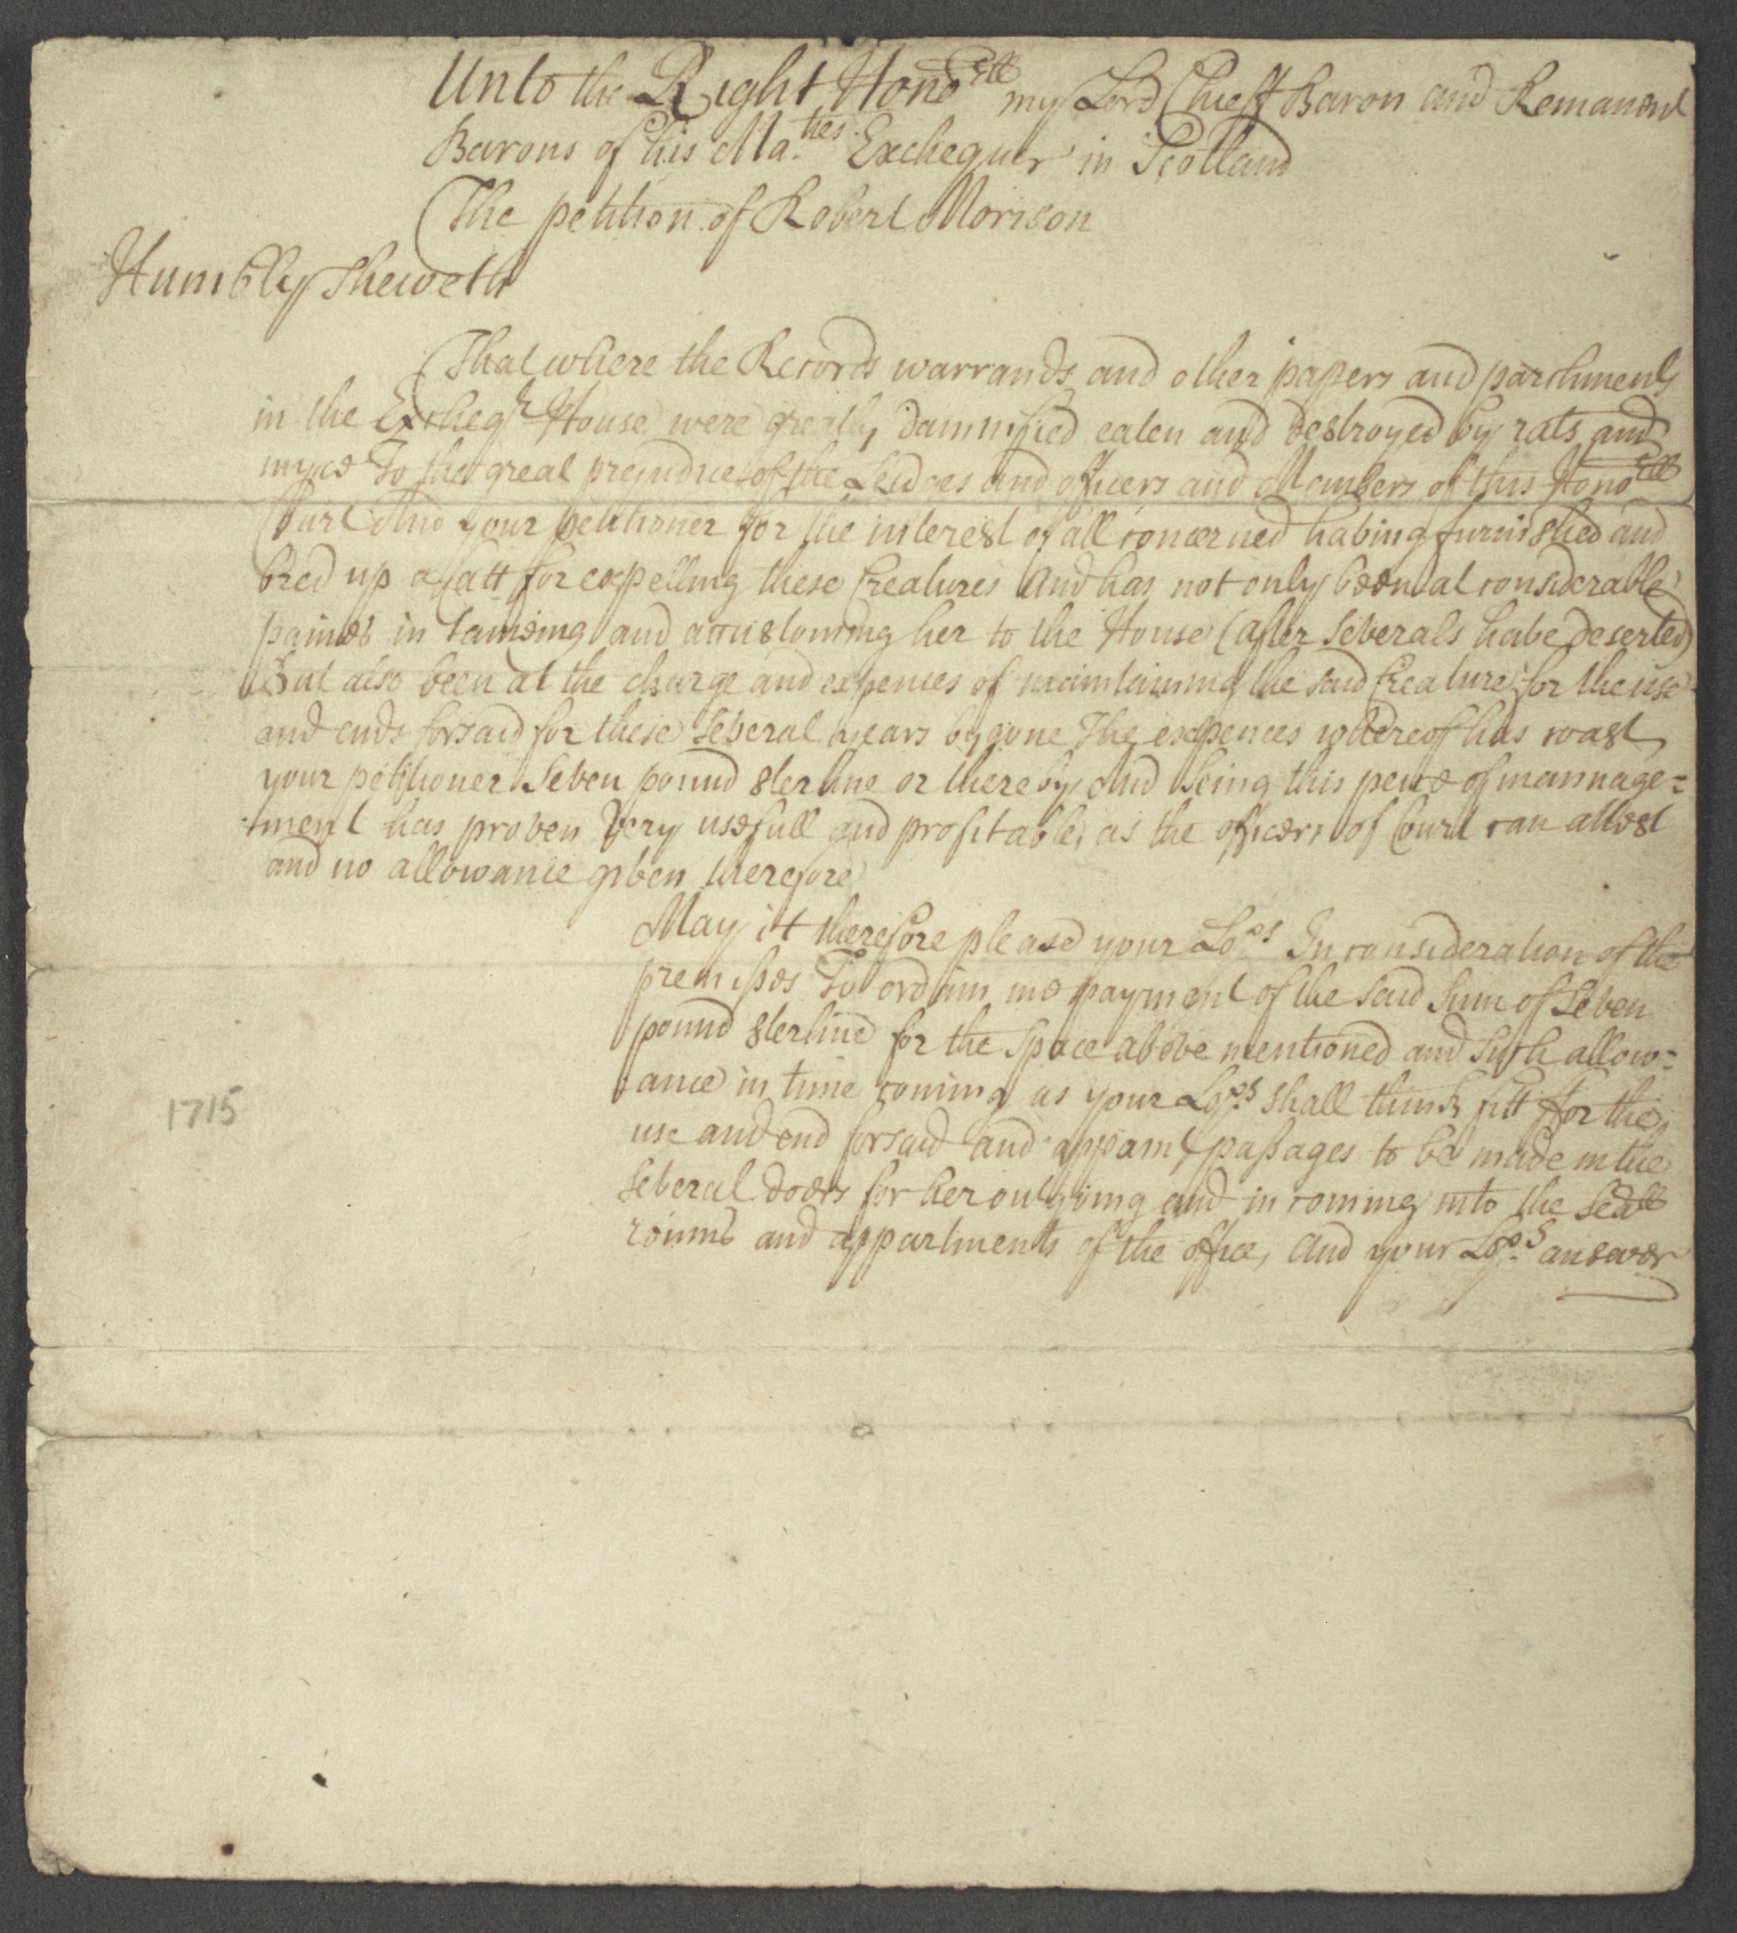 Unto the Right Honoble my Lord Chieff Baron and Remanent
Barons of his Ma.ties Exchequer in Scotland
The petition of Robert Morison
Humbly Sheweth
That where the Records warrands and other papers and parchments
in the Excheqr House were greatly damnified eaten and destroyed by rats and
myce To the great prejudice of the Leidges and officers and Members of this Honoble
Court And your petitioner for the interest of all concerned having furnished and
bred up a Catt for expelling these Creatures And has not only been at considerable
paines in tameing and accustoming her to the House (after severals have deserted)
But also been at the charge and expences of maintaining the said Creature for the use
and ends forsaid for these several years bygone The expences whereof has coast
your petitioner Seven pound sterline or thereby And being this peice of mannage=
=ment has proven very usefull and profitable, as the officers of Court can attest
and no allowance given therefore
May it therefore please your Lops In consideration of the
premisses To ordain me payment of the said Sum of Seven
pound sterline for the space above mentioned and such allow=
=ance in time coming as your Lops shall think fitt for the
use and end forsaid and appoint passages to be made in the
several doors for her outgoing and in coming into the seall
roums and appartments of the office, And your Lops answer
1715